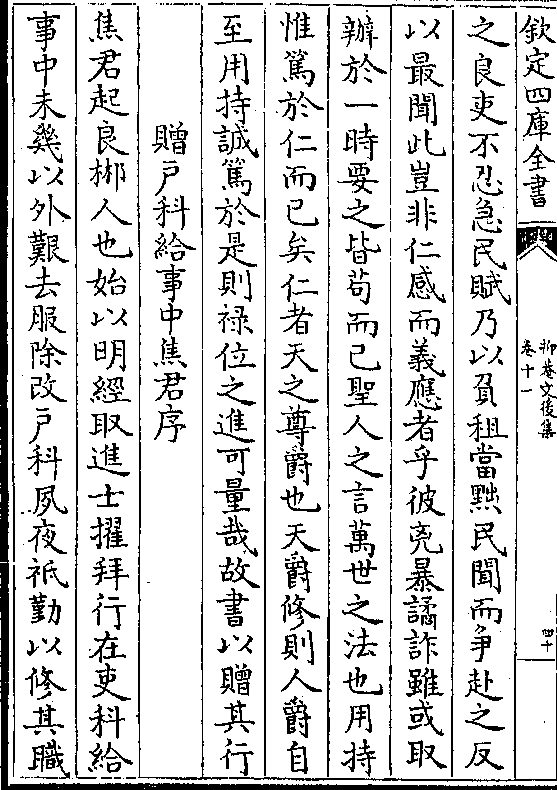 欽定四庫全書
抑菴文後集
卷十一
四十
之良吏不忍急民賦乃以負租當黜民聞而争赴之反
以最聞此豈非仁感而義應者乎彼兇暴譎詐雖或取
辦於一時要之皆苟而已聖人之言萬世之法也用持
惟篤於仁而已矣仁者天之尊爵也天爵修則人爵自
至用持誠篤於是則禄位之進可量哉故書以贈其行
贈户科給事中焦君序
焦君起良郴人也始以明經取進士擢拜行在吏科給
事中未幾以外艱去服除改户科夙夜祗勤以修其職